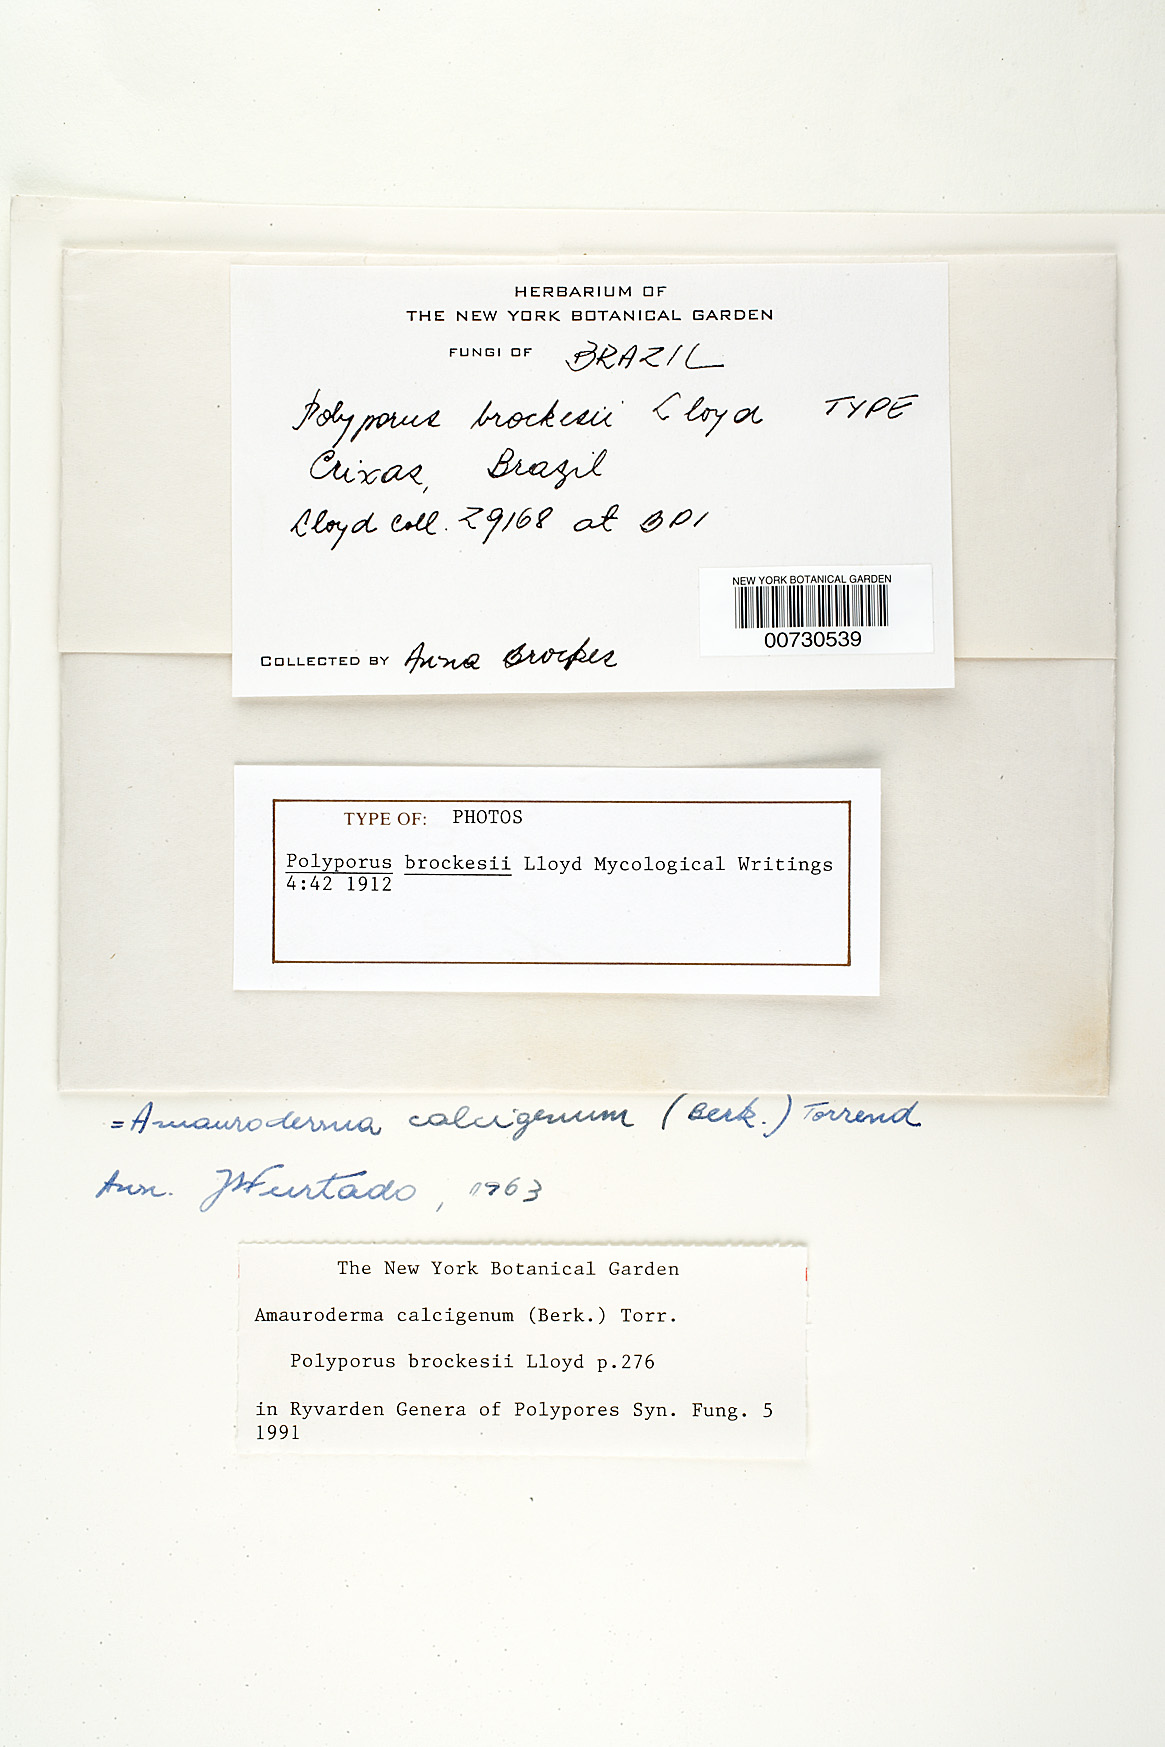 HERBARIUM OF
THE NEW YORK BOTANICAL GARDEN
FUNGI OF BRAZIL
Polyporus brockesii Lloyd TYPE
Crixas, Brazil
Lloyd coll. 29168 at BPI
NEW YORK BOTANICAL GARDEN
00730539
COLLECTED BY Anna Brockes
TYPE OF: PHOTOS
Polyporus brockesii Lloyd Mycological Writings
4:42 1912
=Amauroderma calcigenum (Berk.) Torrend
Ann. JSFurtado, 1963
The New York Botanical Garden
Amauroderma calcigenum (Berk.) Torr.
Polyporus brockesii Lloyd p.276
in Ryvarden Genera of Polypores Syn. Fung. 5
1991